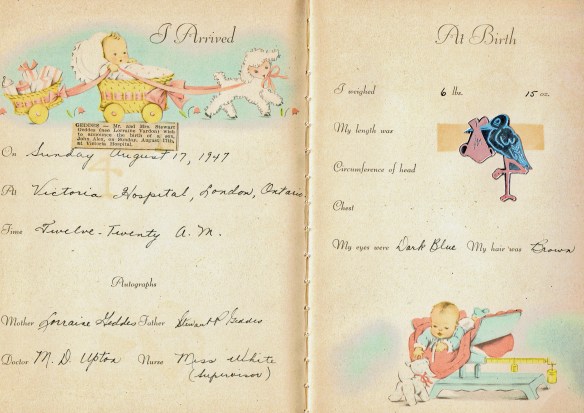 I Arrived
GEDDES — Mr. and Mrs. Stewart
Geddes (nee Lorraine Yardon) wish
to announce the birth of a son,
John Alex, on Sunday, August 17th,
at Victoria Hospital.
On Sunday August 17, 1947
At Victoria Hospital, London, Ontario.
Time Twelve-Twenty A.M.
Autographs
Mother Lorraine Geddes Father Stewart P Geddes
Doctor M. D. Upton Nurse Miss White
(supervisor)
At Birth
I weighed 6 lbs. 15 oz.
My length was
Circumference of head
Chest
My eyes were Dark Blue My hair was Brown